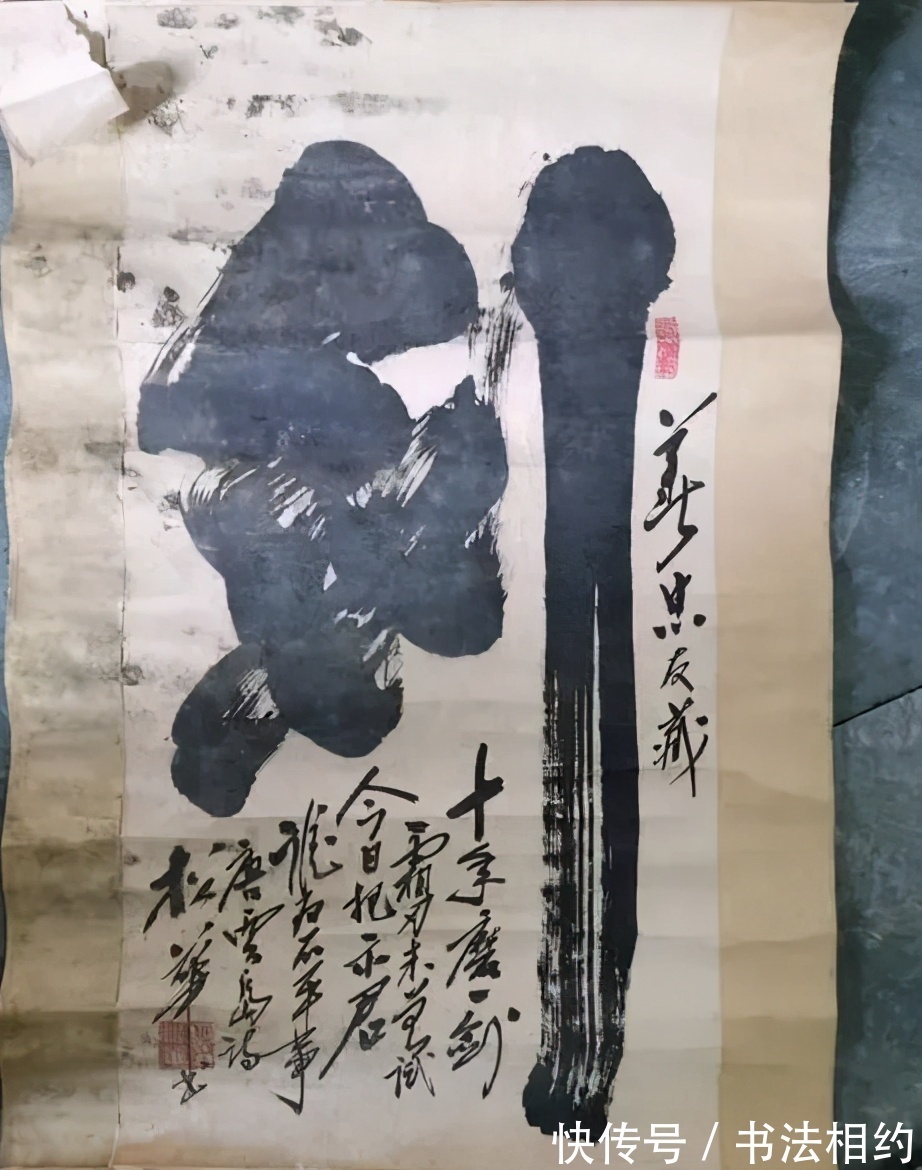 剑
友藏
十年磨一剑
霜刃未曾试
今日把示君
谁为不平事
唐贾岛诗
松华书
快传号 / 书法相约